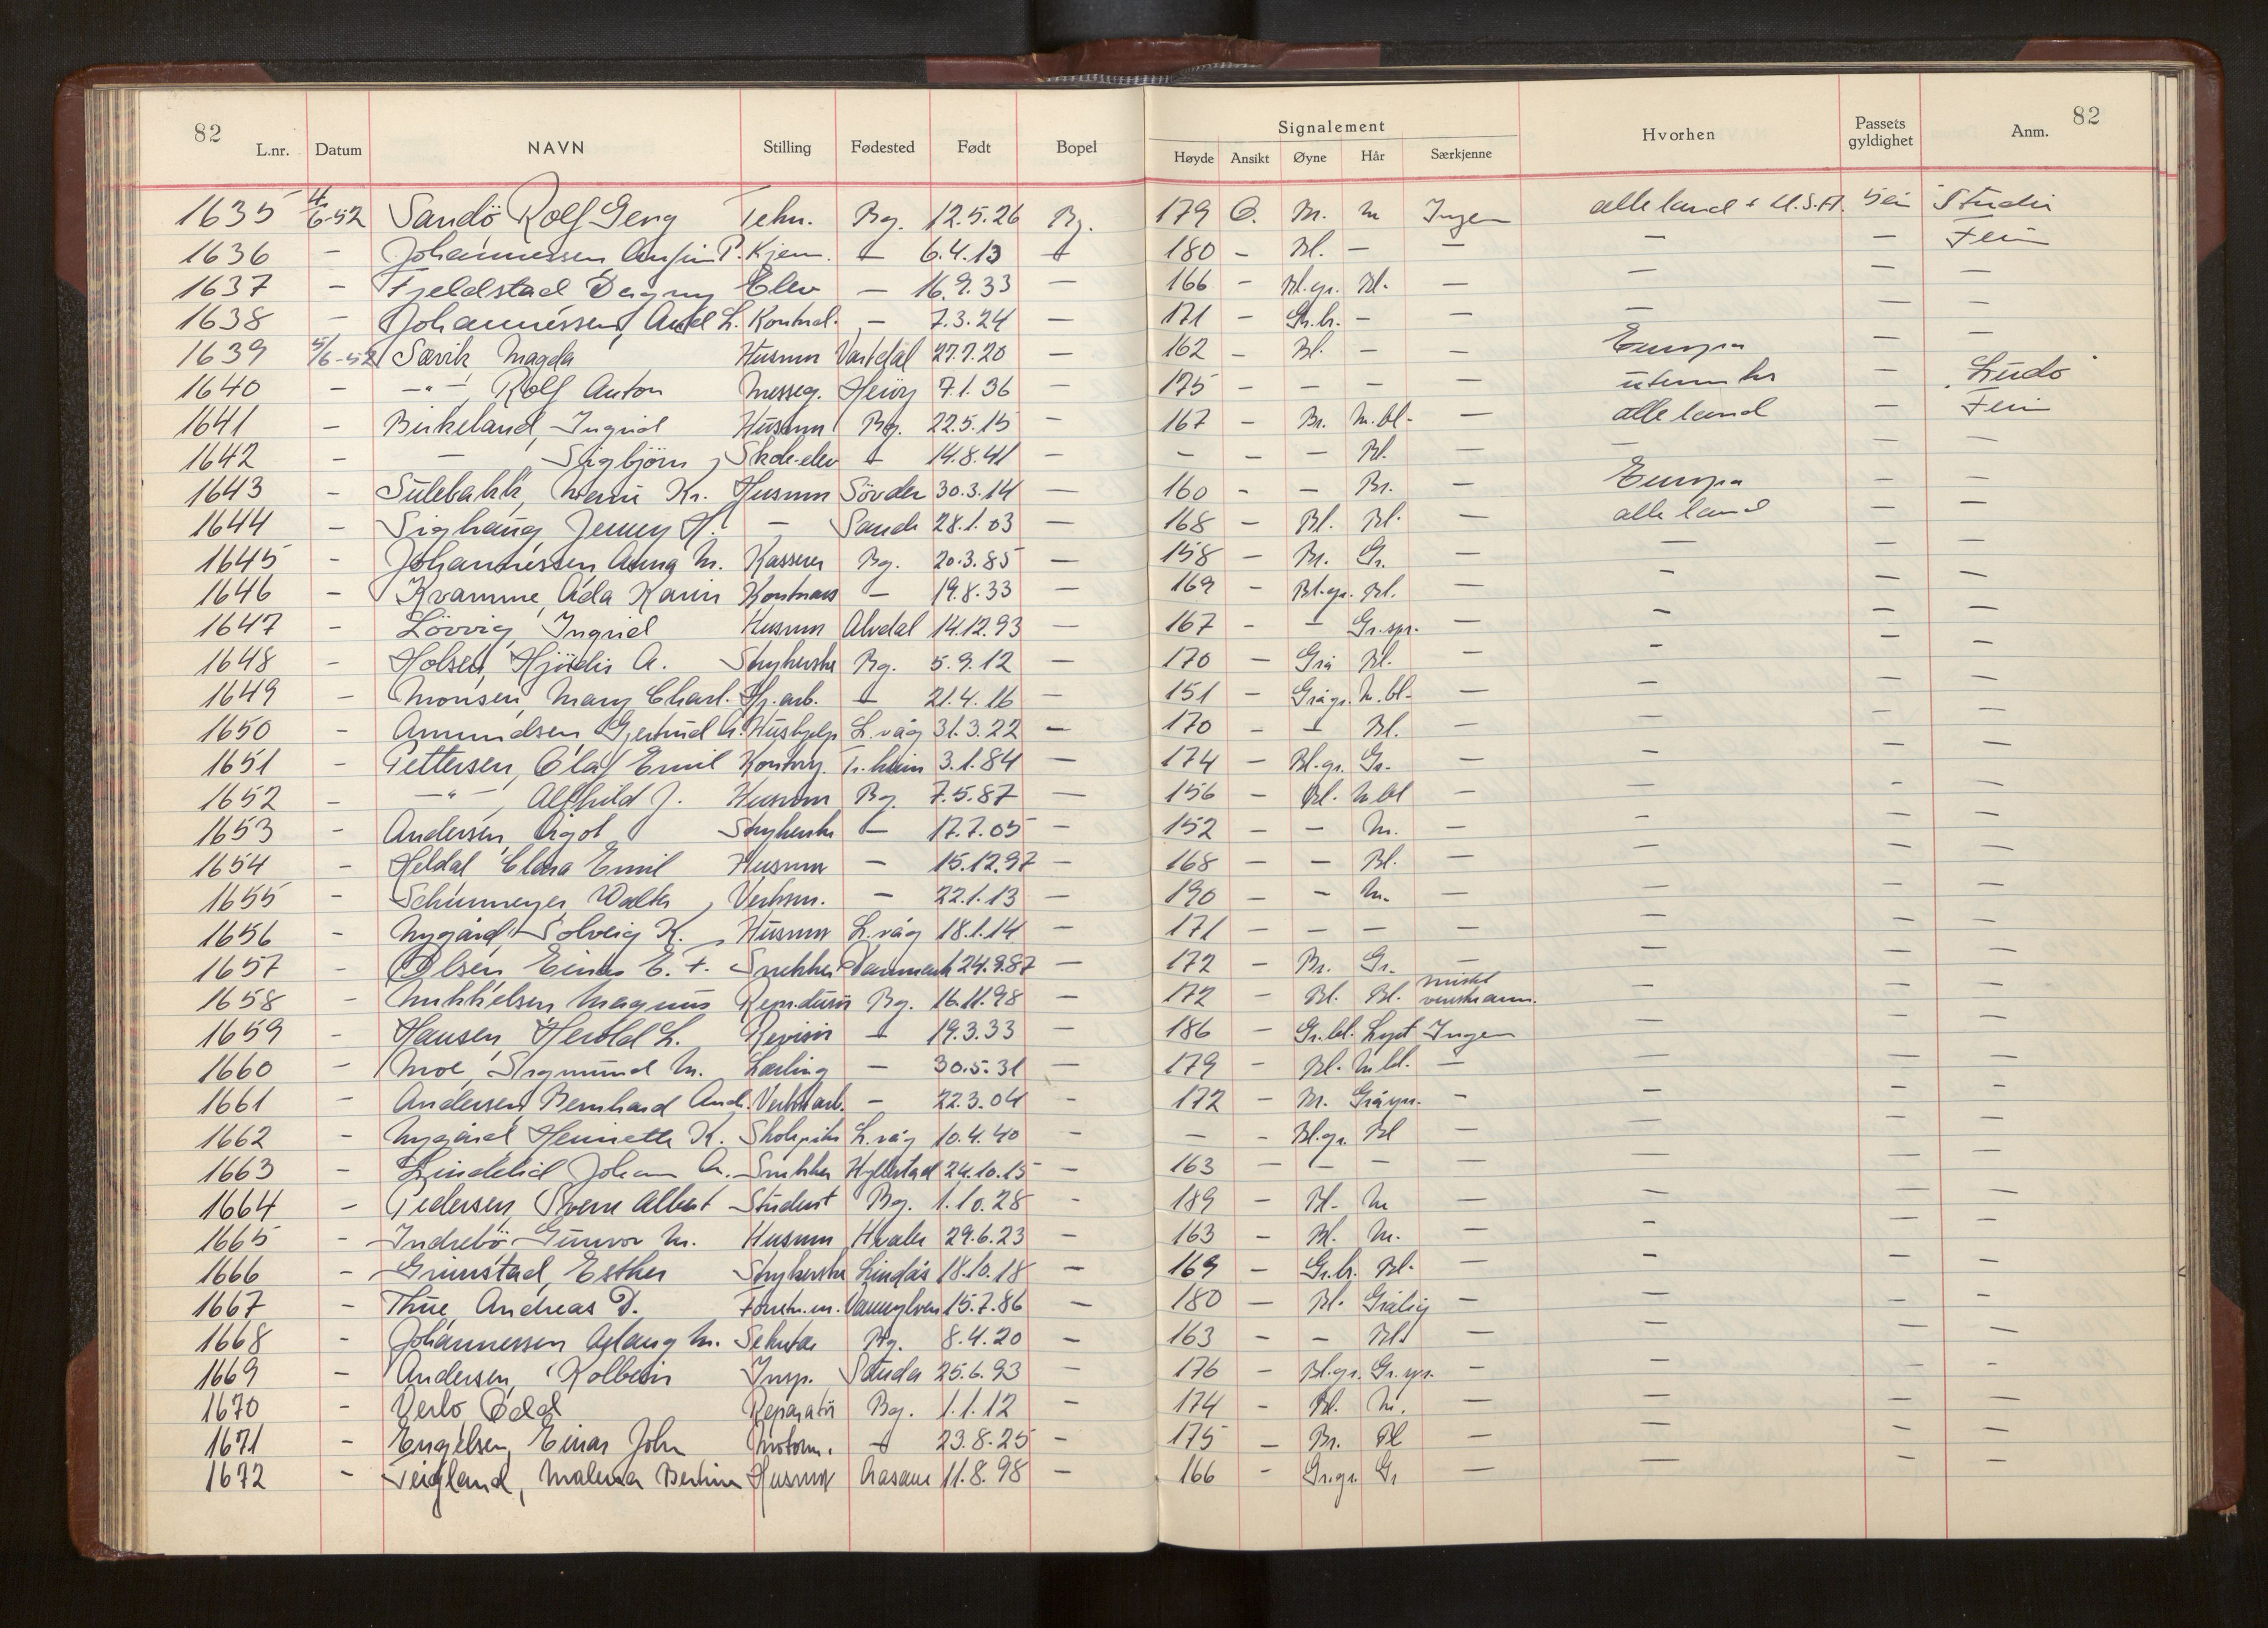 82 82
Signalement
L.nr. Datum NAVN Stilling Fødested Født Bopel Høyde Ansikt Øyne Hår Særkjenne Hvorhen Passets gyldighet Anm.
1635 4/6-52 Sandö Rolf Georg Tekn. Bg. 12.5.26 Bg. 179 O. M. M Ingen alle land + U.S.A. 5 år Studie
1636 - Johannessen, P. Kjem. - 6.4.13 - 180 - Bl. - - - - Feri
1637 - Fjeldstad Dagny Elev - 16.9.33 - 166 - Bl.gr. Bl. - - - -
1638 - Johannessen, Aud L. Kontrol. - 7.3.24 - 171 - Gr.br. - - - - -
1639 5/6-52 Sævik Magda Husmor Vartdal 27.7.20 - 162 - Bl. - - Europa - -
1640 - -"- Rolf Anton Messeg. Heröy 7.1.36 - 175 - - - - utenriks - Ludo
1641 - Birkeland, Ingrid Husmor Bg. 22.5.15 - 167 - Br. M.bl. - alle land - Feri
1642 - - Sigbjörn Skole-elev - 14.8.41 - - - - Bl. - - - -
1643 - Sulebakk, Marie Kr. Husmor Sövde 30.3.14 - 160 - - Br. - Europa - -
1644 - Sighaug, Jenny H. - Sande 28.1.03 - 168 - Bl. Bl. - alle land - -
1645 - Johannessen Anna M. Kasserer Bg. 20.3.85 - 158 - Br. Gr. - - - -
1646 - Kvamme, Ada Karin Kontrass - 19.8.33 - 169 - Bl.gr. Bl. - - - -
1647 - Lövvig, Ingrid Husmor Alvdal 14.12.93 - 167 - - Gr.spr. - - - -
1648 - Holsen, Hjördis A. Strykerske Bg. 5.9.12 - 170 - Grå Bl. - - - -
1649 - Monsen, Mary Charl. Hj.arb. - 21.4.16 - 151 - Grågr. M.bl. - - - -
1650 - Amundsen Gjertrud A. Hushjelp L.våg 31.3.22 - 170 - - Bl. - - - -
1651 - Pettersen, Olaf Emil Kontorg. Tr.heim 3.1.84 - 174 - Bl.gr. Gr. - - - -
1652 - -"- Alfhild J. Husmor Bg. 7.5.87 - 156 - Bl. M.bl - - - -
1653 - Andersen, Aagot Strykerske - 17.7.05 - 152 - - M. - - - -
1654 - Heldal Clara Emil Husmor - 15.12.97 - 168 - - Bl. - - - -
1655 - Schumeyer, Walter Verksm. - 22.1.13 - 190 - - M. - - - -
1656 - Nygård, Solveig K. Husmor L.våg 18.1.14 - 171 - - - - - - -
1657 - Olsen Einar E. F. Snekker Danmark 24.9.87 - 172 - Br. Gr. - - - -
1658 - Mikkelsen Magnus Bg. 16.11.98 - 172 - Bl. Bl. mistet venstre arm. - - -
1659 - Hansen, Herold L. Revisor - 19.3.33 - 186 - Gr.bl. Lyst Ingen - - -
1660 - Moe, Sigmund M. Lærling - 30.5.31 - 179 - Bl. M.bl. - - - -
1661 - Andersen, Bernhard And. Verkst.arb. - 22.3.04 - 172 - Br. Gråspr. - - - -
1662 - Nygård Henriette K. Skolepike L.våg 10.4.40 - - - Bl.gr. Bl - - - -
1663 - Lindelid Johan A. Snekker Hyllestad 24.10.15 - 163 - - - - - - -
1664 - Pedersen Sverre Albert Student Bg. 1.10.28 - 189 - Bl. M - - - -
1665 - Indrebö Gunvor M. Husmor Hvaler 29.6.23 - 163 - Bl. M. - - - -
1666 - Grimstad, Esther Strykerske Lindås 18.10.18 - 169 - Gr.br. Bl. - - - -
1667 - Thue Andreas D. Forretn.m. Vannylven 15.7.86 - 180 - Bl. Grålig - - - -
1668 - Johannessen Aslaug M. Sekretær Bg. 8.4.20 - 163 - - Bl. - - - -
1669 - Andersen, Kolbein Insp. Sauda 25.6.93 - 176 - Bl.gr. Gr.spr. - - - -
1670 - Verlo, Odd Reparatör Bg. 1.1.12 - 174 - Bl. M. - - - -
1671 - Engelsen, Einar John Motorm. - 23.8.25 - 175 - Br. Bl - - - -
1672 - Veigland, Malena Bertine Husmor Aasane 11.8.98 - 166 - Gr.gr. Gr - - - -